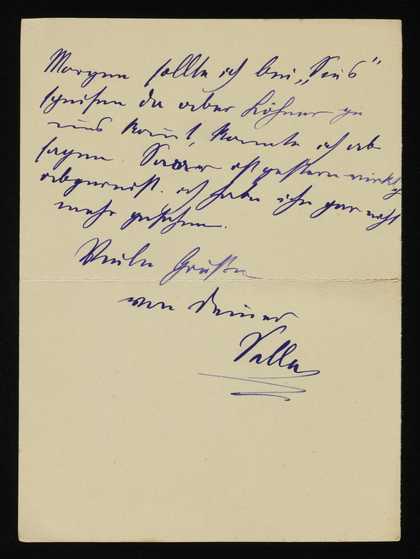 Morgen sollte ich bei „Sens"
speisen da aber Löhner zu
uns kommt, konnte ich ab
sagen. Saar ist gestern wirklich
abgereist. ich habe ihn gar nicht
mehr gesehen.
Viele Grüße
von Deiner
Bella